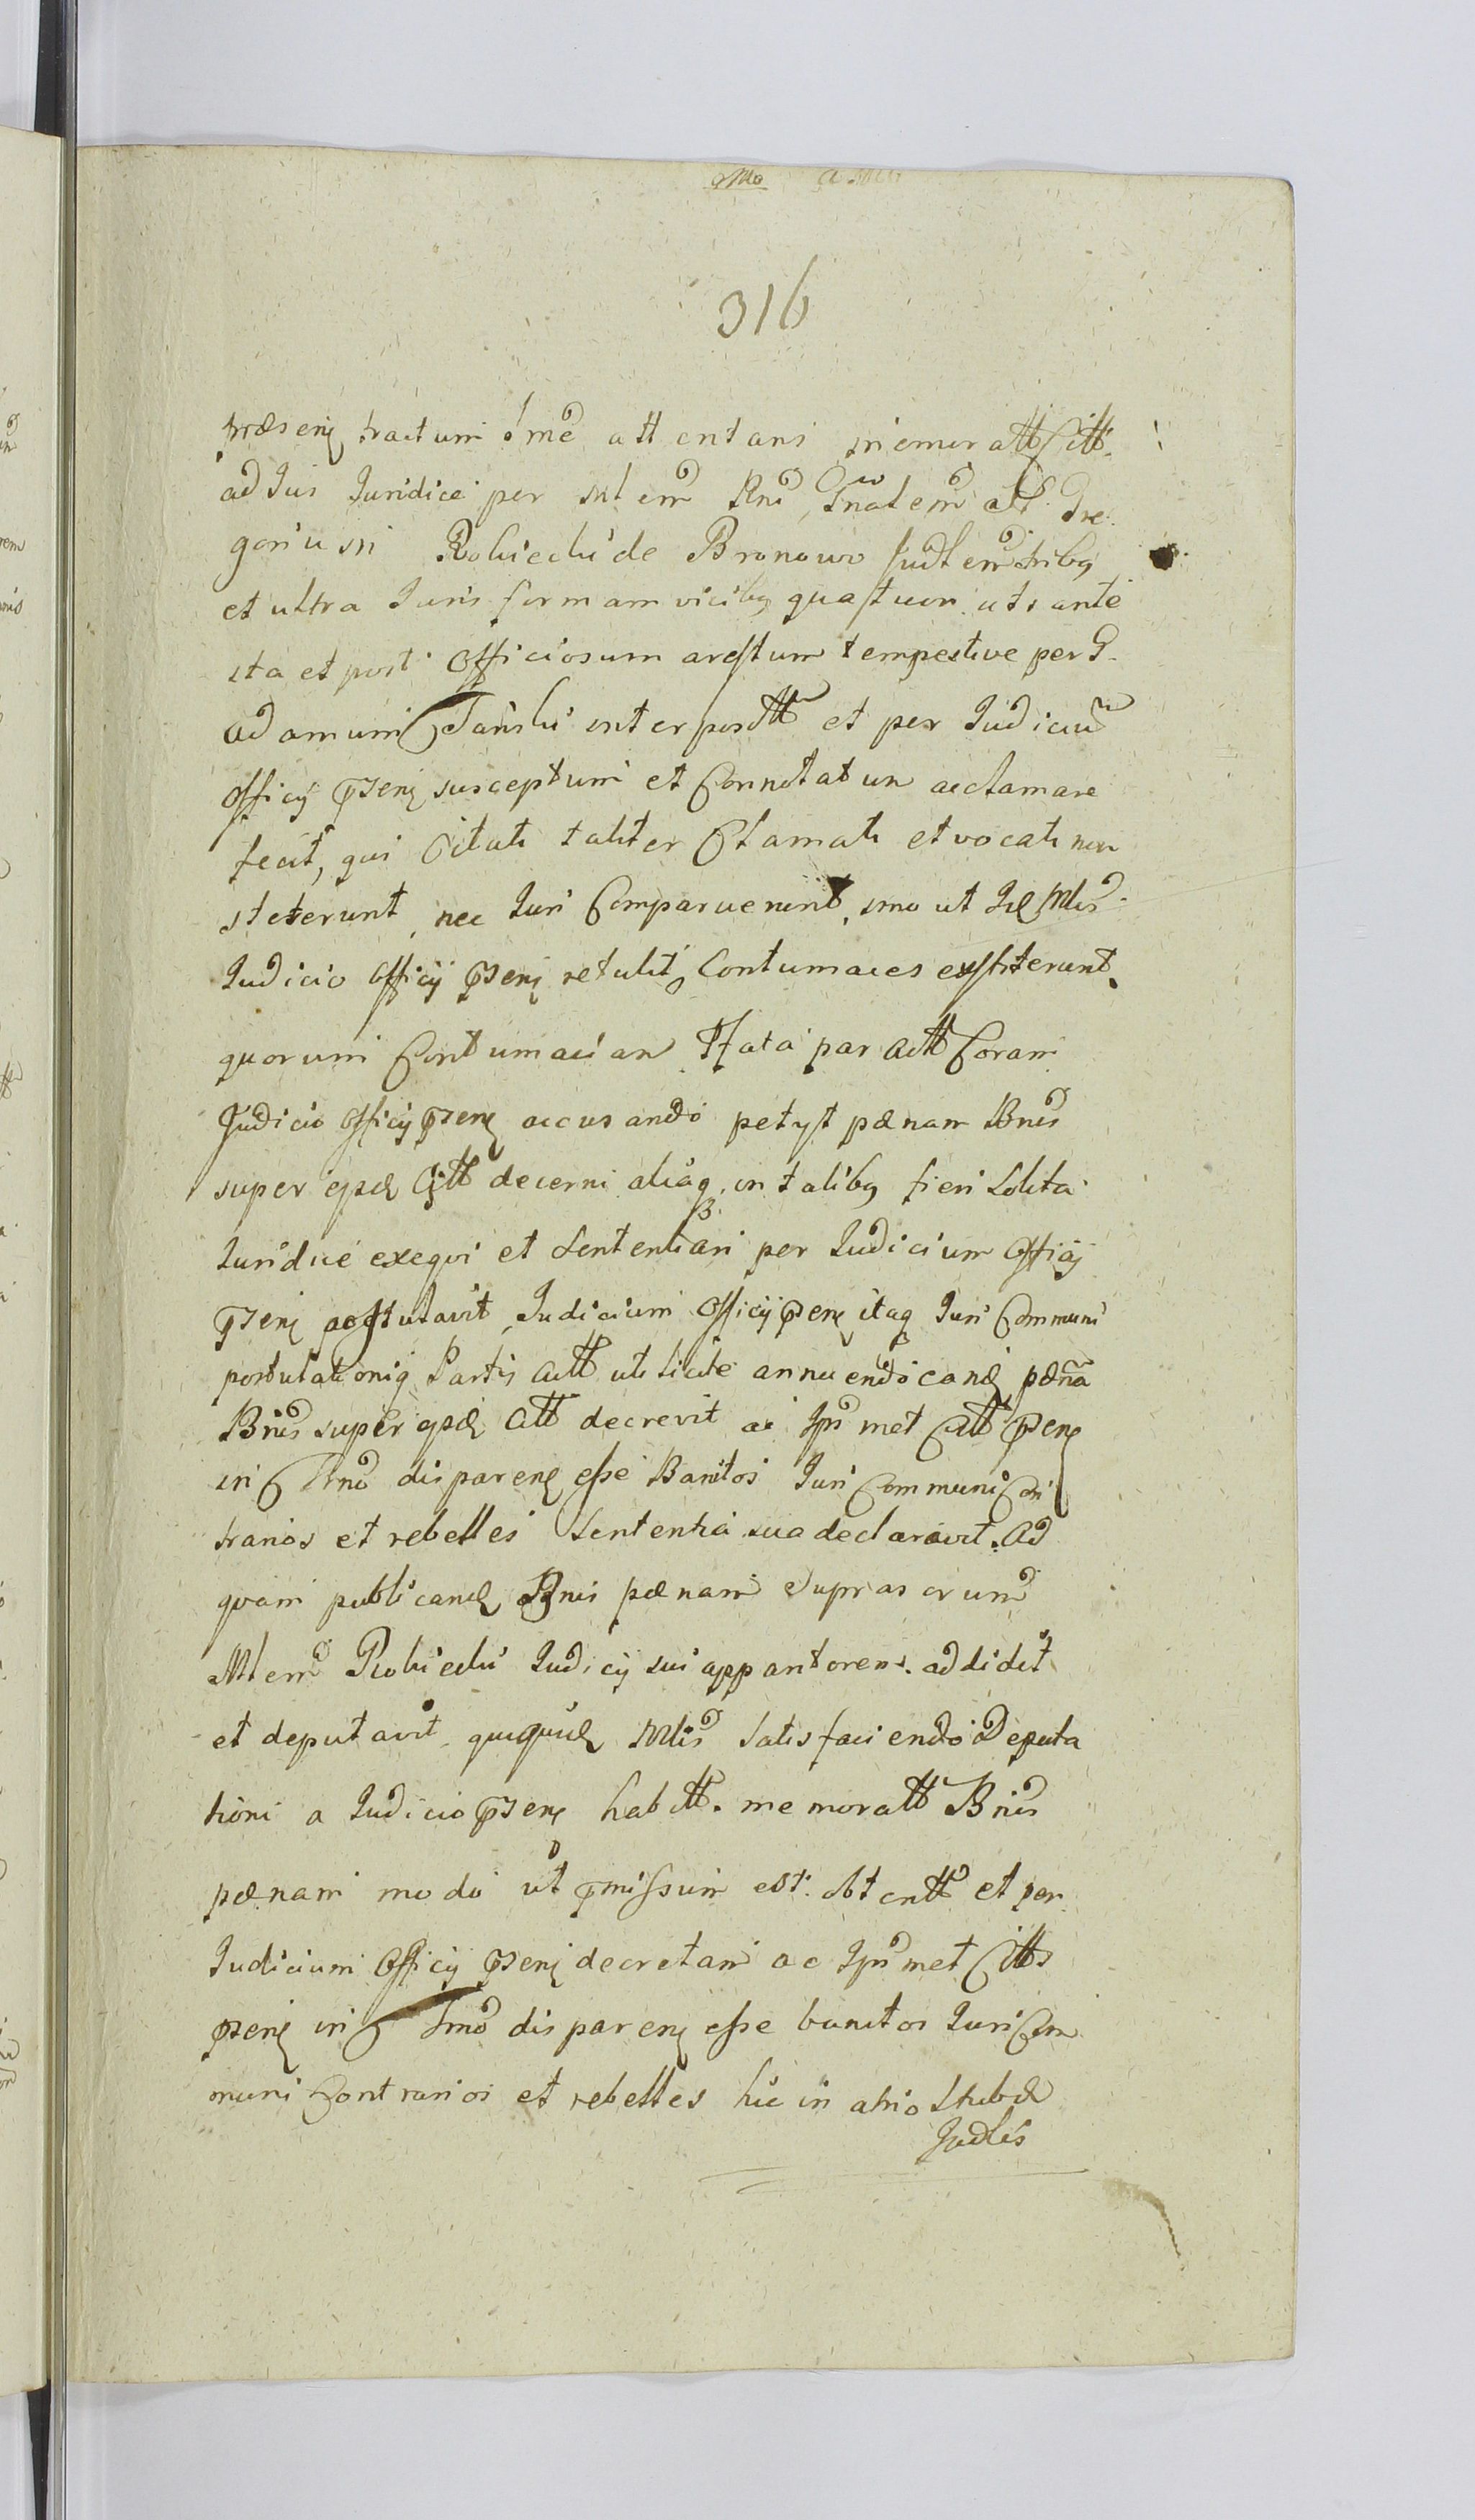 316
præsenẹ tractum šme attentans memoratt Citt.
ad Ius Iuridice per Mtem Rnd Gnalem att Gre
gorium Robiecki de Bronowo Judtem tribq
et ultra Juris formam vicibq quatuor uti ante
ita et post Officiosum arestum tempestive per G.
Adamum Janski interpositt et per Iudicium
Officÿ pñsenẹ susceptum et Connotatum acclamare
fecit, qui Citati taliter Clamati et vocati non
steterunt, nec Iuri Comparuerunt, imo ut Id Mlis
Iudicio Officÿ pñsenẹ retulit Contumaces exstiterunt.
quorum Contumaciam Pfata pars Actt Coram
Judicio Officÿ pñsenẹ accusando petyt pænam Bnis
super ipsẹ Citt decerni aliaq in talibq fieri Solita
Iuridice exeqvi et Sententiari per Iudicium Officÿ
pñsenẹ postulavit Judicium Officÿ pñsenẹ itaq Iuri Communi
postulationiq Partis Actt uti licite annuendo eandẹ pæna
Bnis super ipsẹ Citt decrevit ac Ipsmet Citt pñsenẹ
in Trno disparenẹ esse Banitos Iuri Communi Con
trarios et rebelles Sententia sua declaravit. Ad
qvam publicandẹ Bnis pænam Supras crum
Mtem Robiecki Iudicÿ sui apparitorem addidit
et deputavit, quiquidẹ Mlis Satisfaciendo Deputa
tioni a Iudicio pñsenẹ habitt. memoratt Bnis
pænam modo ut pmissum est. obtentt et per
Iudicium Officÿ pñsenẹ decretam ac Ipsmet Citts
pñsenẹ in Trno disparenẹ esse banitos Iuri Com
muni Contrarios et rebelles hic in atrio Stubæ
Judlis